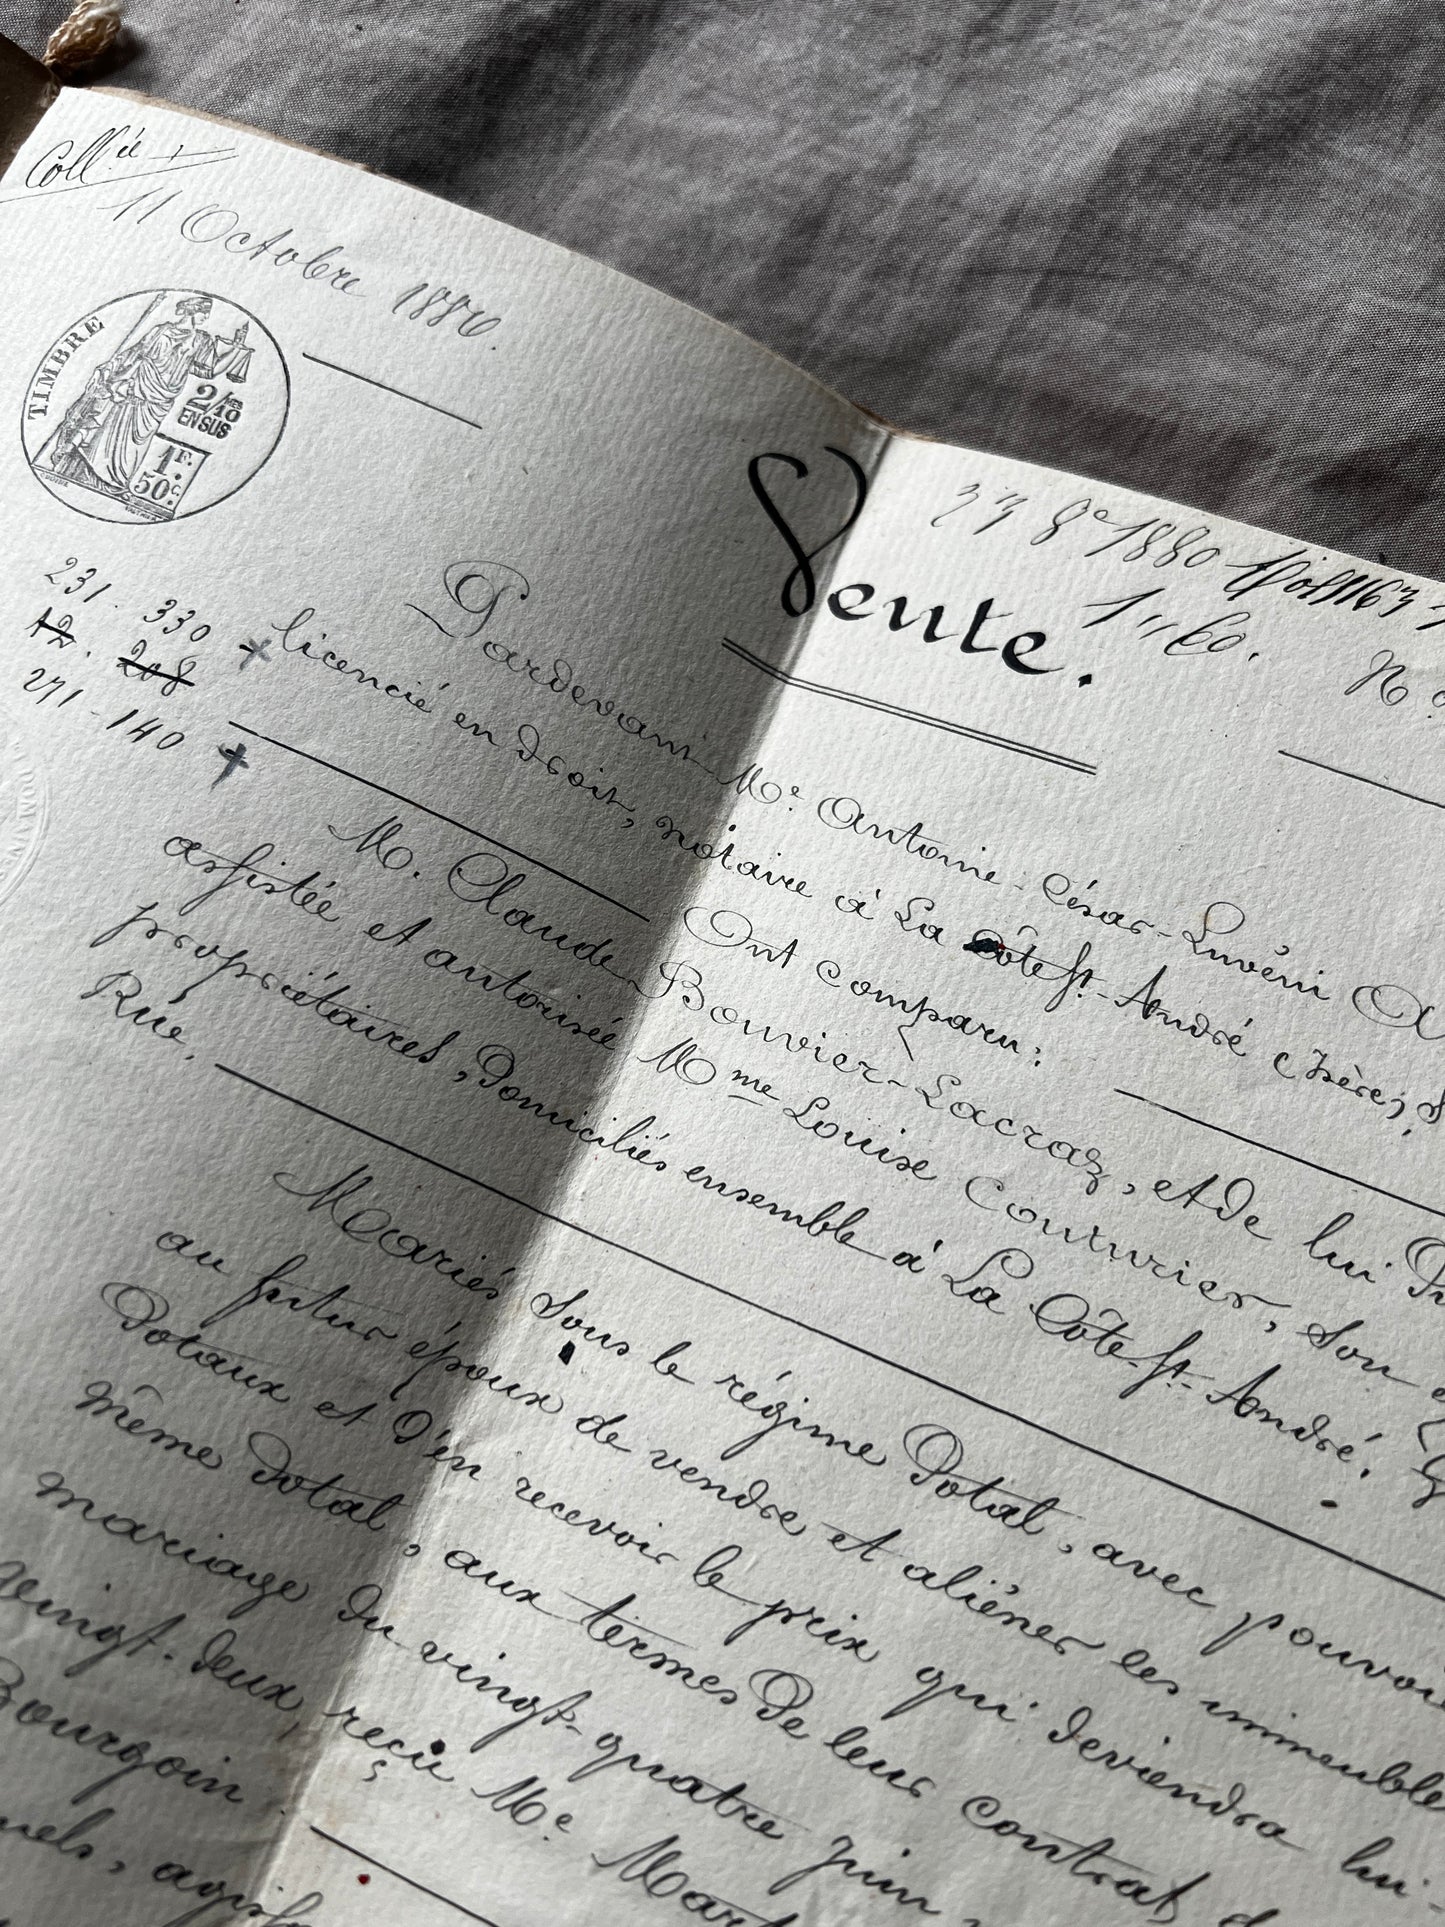 Coll.ée
11 Octobre 1880.
TIMBRE
2/10 MES
EN SUS
1F.
50c.
Vente.
8e 1880
1" 60.
No
231. 330
12. 208
271 - 140
Pardevant Me Antoine-César-Luvéni
licencié en droit, notaire à La Côte St-André (Isère),
Ont comparu:
M. Claude Bouvier-Lacraz, et de lui
assistée et autorisée Mme Louise Couturier, son
propriétaires, domiciliés ensemble à La Côte-St-André.
Rue.
Mariés sous le régime dotal, avec pouvoir
au futur époux de vendre et aliéner les immeubles
dotaux et d'en recevoir le prix qui deviendra lui-
même dotal, aux termes de leur contrat de
mariage du vingt-quatre juin
vingt-deux, reçu Me
Bourgoin